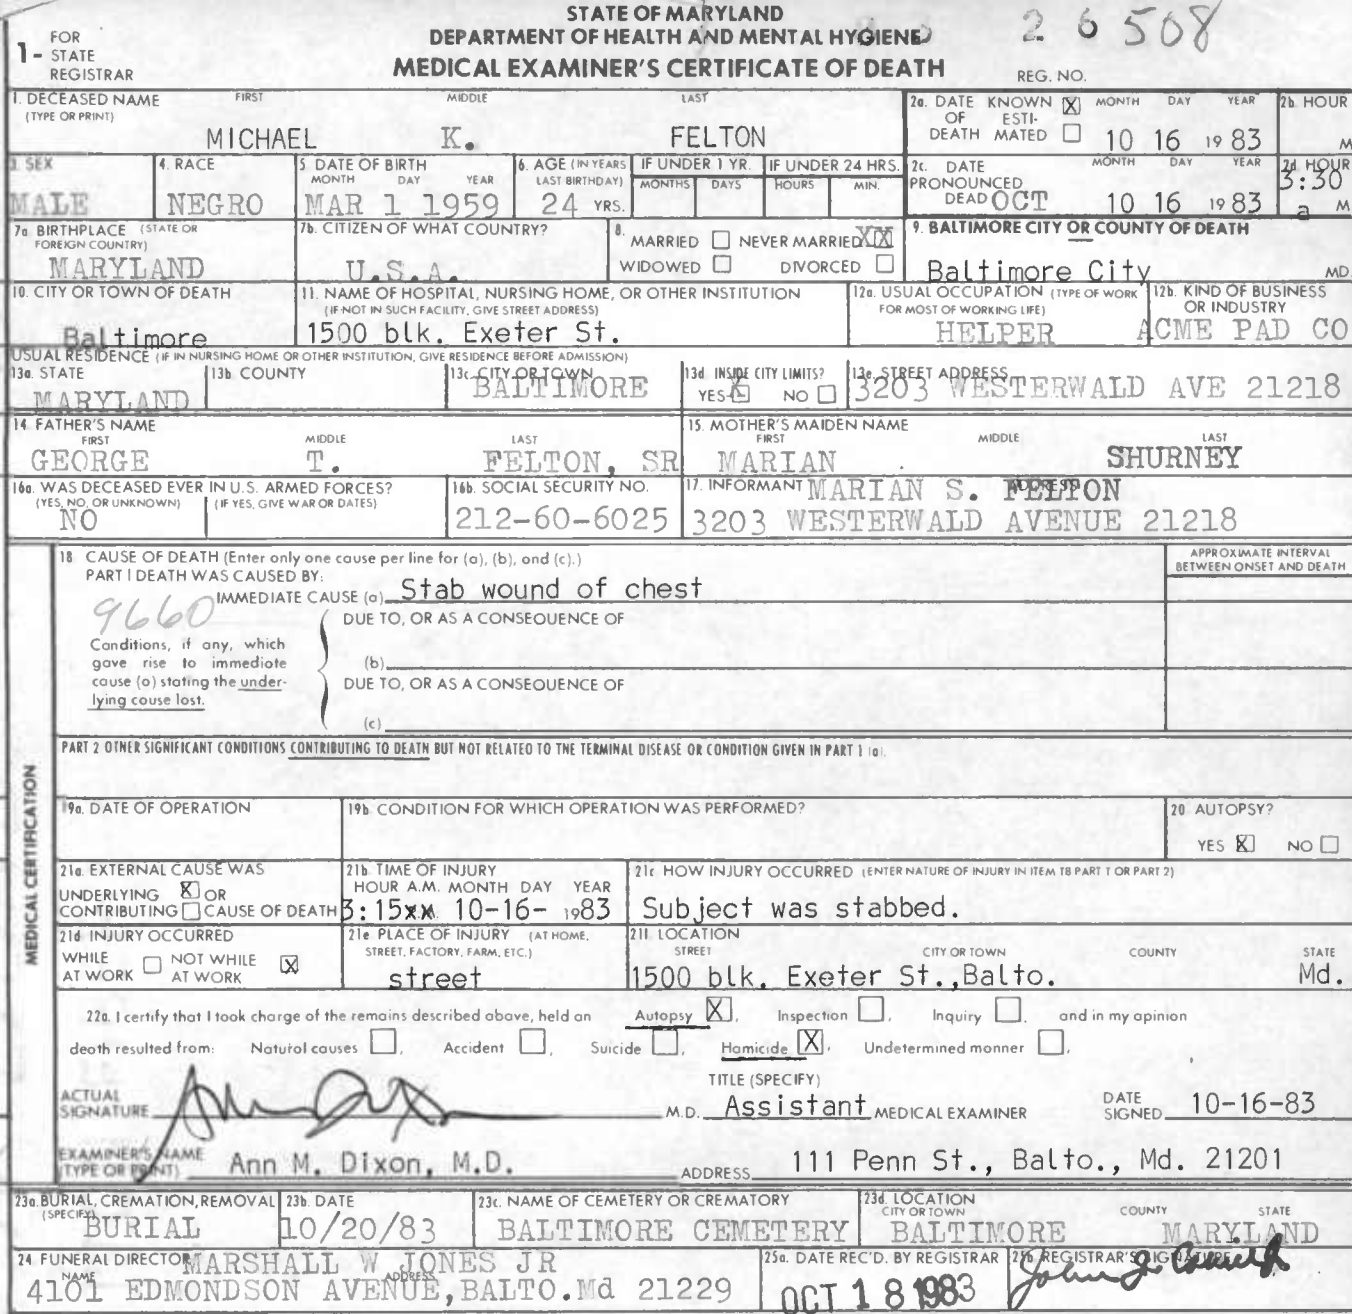 STATE OF MARYLAND
DEPARTMENT OF HEALTH AND MENTAL HYGIENE
MEDICAL EXAMINER'S CERTIFICATE OF DEATH
1- FOR STATE REGISTRAR
26508
REG. NO.
1. DECEASED NAME (TYPE OR PRINT) FIRST MIDDLE LAST
MICHAEL K. FELTON
2a. DATE OF DEATH KNOWN X ESTI-MATED MONTH DAY YEAR
10 16 1983
2b. HOUR M
3 SEX
MALE
4. RACE
NEGRO
5 DATE OF BIRTH MONTH DAY YEAR
MAR 1 1959
6. AGE (IN YEARS LAST BIRTHDAY)
24 YRS.
IF UNDER 1 YR. MONTHS DAYS
IF UNDER 24 HRS. HOURS MIN.
2c. DATE PRONOUNCED DEAD MONTH DAY YEAR
OCT 10 16 1983
2d HOUR
3:30 a M
7a BIRTHPLACE (STATE OR FOREIGN COUNTRY)
MARYLAND
7b. CITIZEN OF WHAT COUNTRY?
U.S.A.
8. MARRIED NEVER MARRIED XX
WIDOWED DIVORCED
9. BALTIMORE CITY OR COUNTY OF DEATH
Baltimore City MD.
10. CITY OR TOWN OF DEATH
Baltimore
11. NAME OF HOSPITAL, NURSING HOME, OR OTHER INSTITUTION
(IF NOT IN SUCH FACILITY, GIVE STREET ADDRESS)
1500 blk. Exeter St.
12a. USUAL OCCUPATION (TYPE OF WORK FOR MOST OF WORKING LIFE)
HELPER
12b. KIND OF BUSINESS OR INDUSTRY
ACME PAD CO
USUAL RESIDENCE (IF IN NURSING HOME OR OTHER INSTITUTION, GIVE RESIDENCE BEFORE ADMISSION)
13a. STATE
MARYLAND
13b COUNTY
13c CITY OR TOWN
BALTIMORE
13d INSIDE CITY LIMITS?
YES X NO
13e. STREET ADDRESS
3203 WESTERWALD AVE 21218
14 FATHER'S NAME FIRST MIDDLE LAST
GEORGE T. FELTON, SR
15. MOTHER'S MAIDEN NAME FIRST MIDDLE LAST
MARIAN SHURNEY
16a. WAS DECEASED EVER IN U.S. ARMED FORCES?
(YES, NO, OR UNKNOWN) (IF YES, GIVE WAR OR DATES)
NO
16b. SOCIAL SECURITY NO.
212-60-6025
17. INFORMANT ADDRESS
MARIAN S. FELTON
3203 WESTERWALD AVENUE 21218
MEDICAL CERTIFICATION
18 CAUSE OF DEATH (Enter only one cause per line for (a), (b), and (c).)
APPROXIMATE INTERVAL BETWEEN ONSET AND DEATH
PART I DEATH WAS CAUSED BY:
IMMEDIATE CAUSE (a) Stab wound of chest
9660
DUE TO, OR AS A CONSEQUENCE OF
Conditions, if any, which gave rise to immediate cause (a) stating the under-lying cause last.
(b)
DUE TO, OR AS A CONSEQUENCE OF
(c)
PART 2 OTHER SIGNIFICANT CONDITIONS CONTRIBUTING TO DEATH BUT NOT RELATED TO THE TERMINAL DISEASE OR CONDITION GIVEN IN PART 1 (a).
19a. DATE OF OPERATION
19b CONDITION FOR WHICH OPERATION WAS PERFORMED?
20 AUTOPSY?
YES X NO
21a. EXTERNAL CAUSE WAS
UNDERLYING X OR
CONTRIBUTING CAUSE OF DEATH
21b TIME OF INJURY
HOUR A.M. MONTH DAY YEAR
3:15xx 10-16- 1983
21c HOW INJURY OCCURRED (ENTER NATURE OF INJURY IN ITEM 18 PART 1 OR PART 2)
Subject was stabbed.
21d INJURY OCCURRED
WHILE AT WORK NOT WHILE AT WORK X
21e PLACE OF INJURY (AT HOME, STREET, FACTORY, FARM, ETC.)
street
21f. LOCATION
STREET CITY OR TOWN COUNTY STATE
1500 blk. Exeter St.,Balto. Md.
22a. I certify that I took charge of the remains described above, held an Autopsy X, Inspection, Inquiry, and in my opinion
death resulted from: Natural causes, Accident, Suicide, Homicide X, Undetermined manner.
ACTUAL SIGNATURE
M.D. TITLE (SPECIFY) Assistant MEDICAL EXAMINER
DATE SIGNED 10-16-83
EXAMINER'S NAME (TYPE OR PRINT) Ann M. Dixon, M.D.
ADDRESS 111 Penn St., Balto., Md. 21201
23a. BURIAL, CREMATION, REMOVAL (SPECIFY)
BURIAL
23b. DATE
10/20/83
23c. NAME OF CEMETERY OR CREMATORY
BALTIMORE CEMETERY
23d. LOCATION CITY OR TOWN COUNTY STATE
BALTIMORE MARYLAND
24 FUNERAL DIRECTOR NAME ADDRESS
MARSHALL W JONES JR
4101 EDMONDSON AVENUE,BALTO.Md 21229
25a. DATE REC'D. BY REGISTRAR
OCT 18 1983
25b REGISTRAR'S SIGNATURE